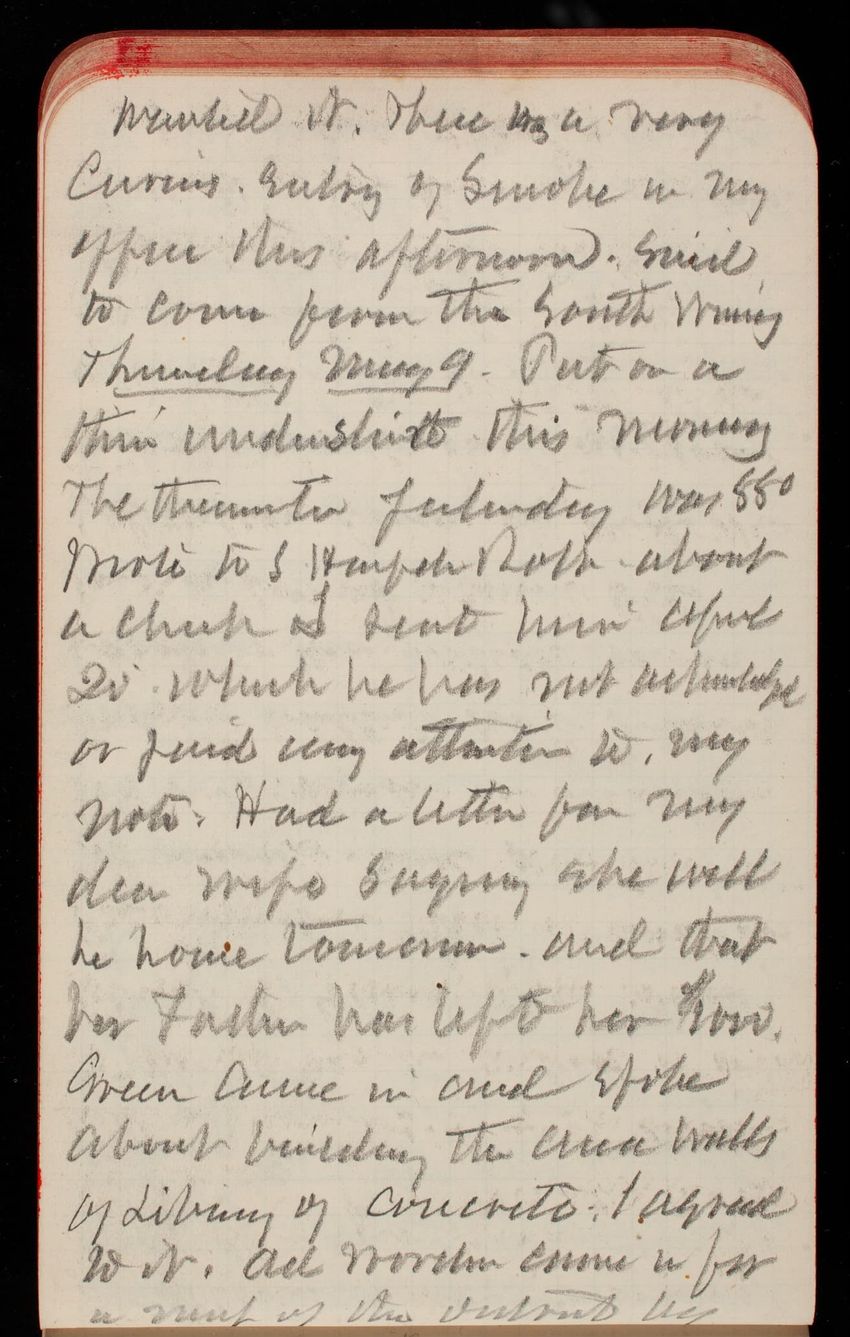 wanted it. There was a very
Curious. Entry of Smoke in my
office this afternoon. Said
to come from the South Wing
Thursday May 9. Put on a
thin undershirt this morning
The thermometer yesterday was 88°
Wrote to S Harper about
a check I sent him April
20 which he has not acknowledged
or paid any attention to, my
note. Had a letter from my
dear wife Saying she will
be home tomorrow. and that
her Father has left her
Green Came in and Spoke
about building the area walls
of Library of concrete. I agreed
to it. came in for
a of the by